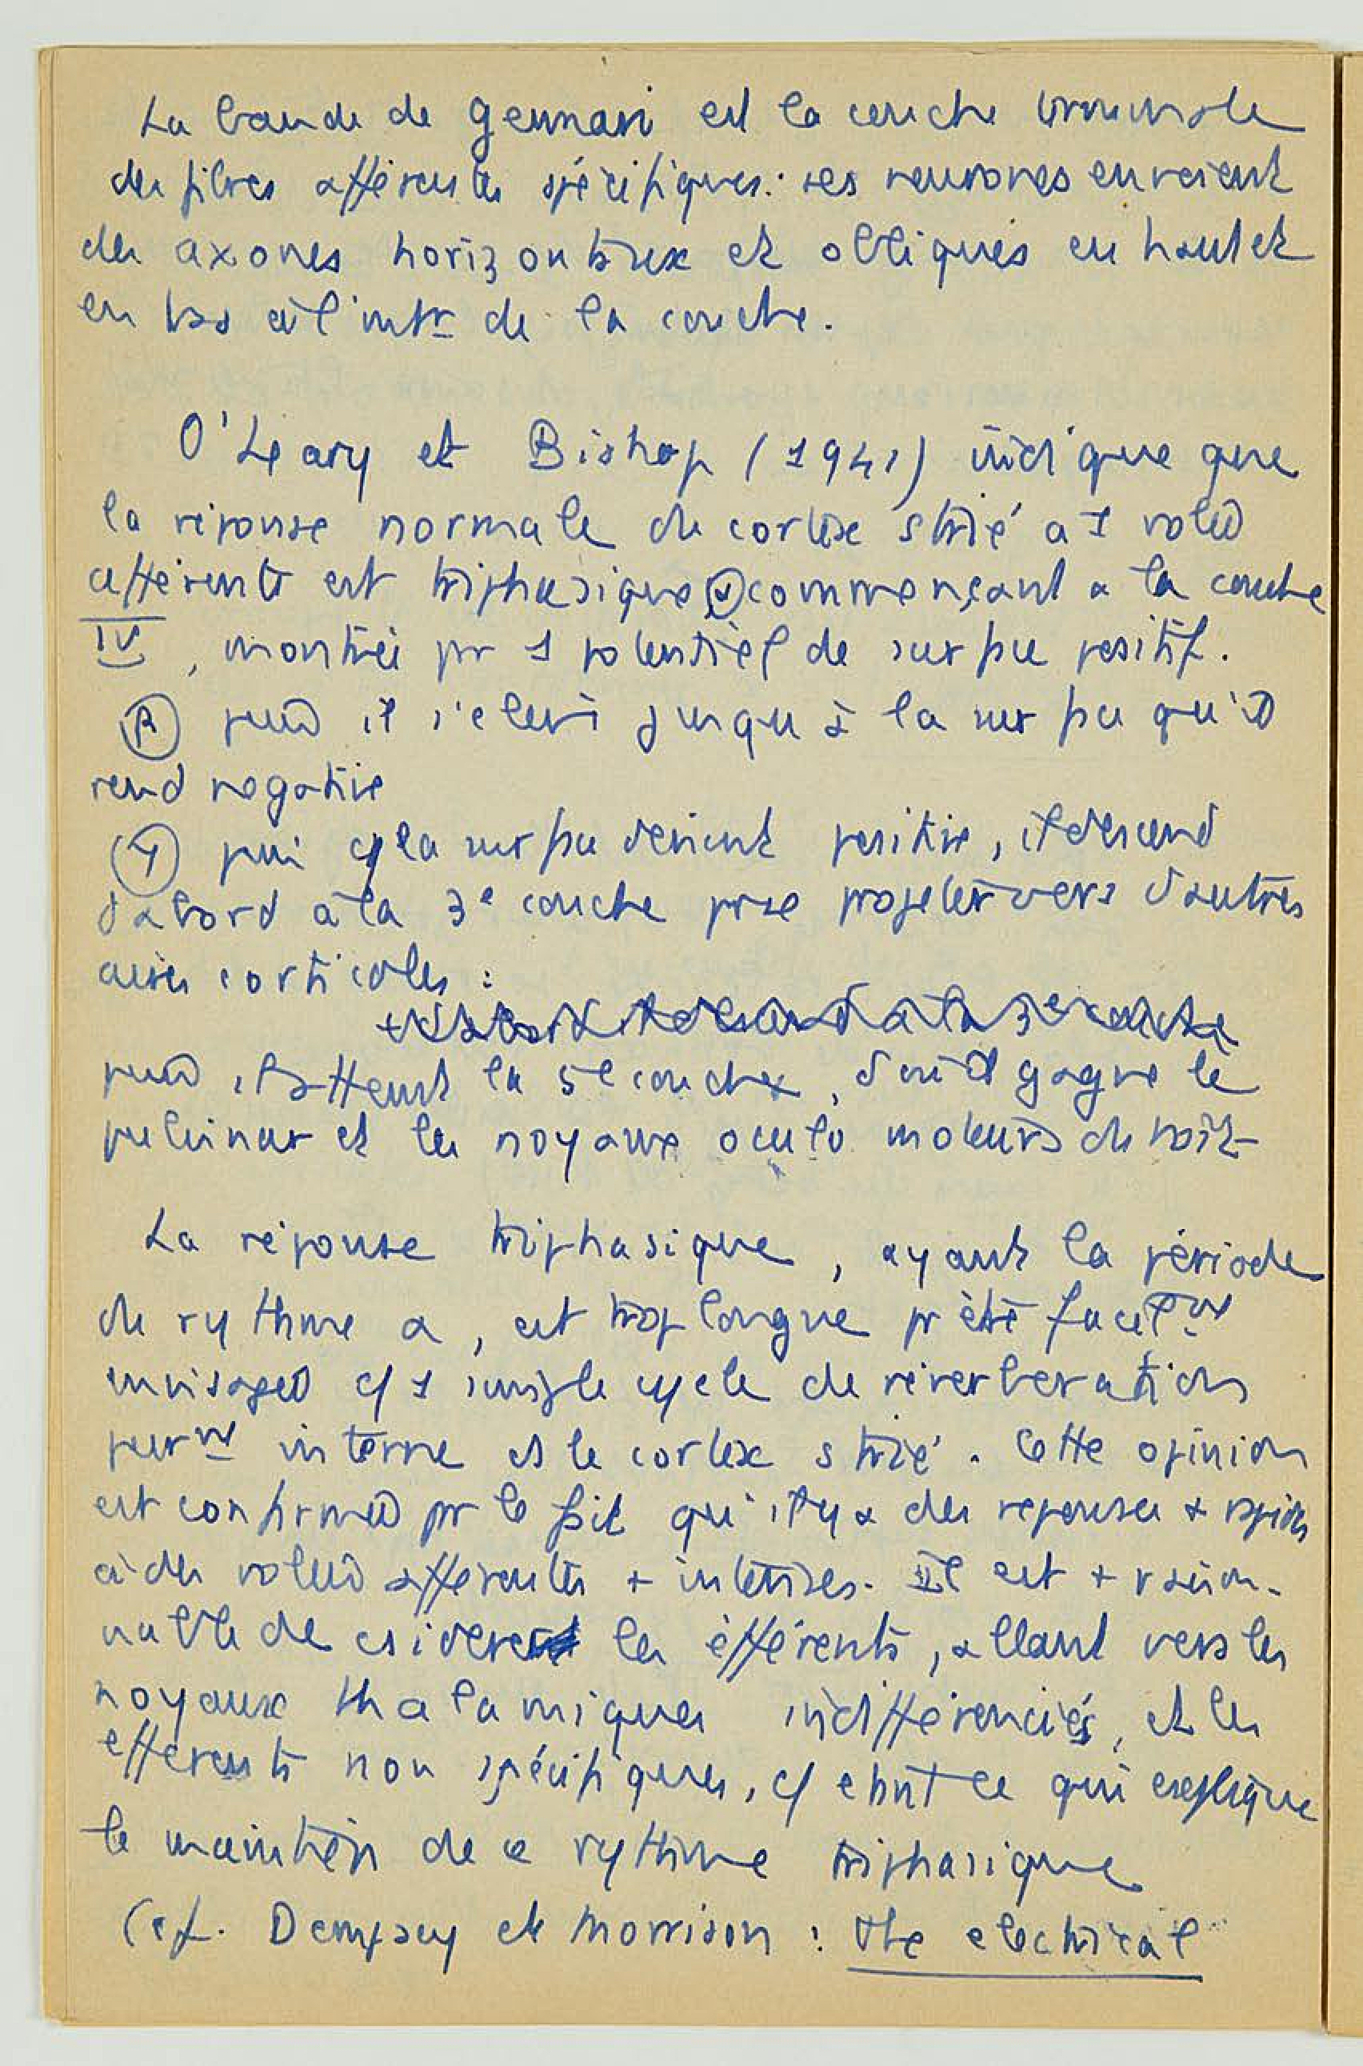 La bande de Gennari est la couche terminale
des fibres afférentes spécifiques : ses neurones envoient
des axones horizontaux et obliques en haut et
en bas à l'intr de la couche.
O'Leary et Bishop (1941) indique que
la réponse normale du cortex strié a 1 volée
afférente est triphasique α commençant a la couche
IV, montrée pr 1 potentiel de surface positif.
β puis il s'elève jusqu'à la surface qu'il
rend negative
γ puis cɟ la surface devient positive, il descend
d'abord à la 3e couche pr se projeter vers d'autres
aires corticales :
puis il atteint la 5e couche, d'où il gagne le
pulvinar et les noyaux oculo moteurs du toit
La réponse triphasique, ayant la période
du rythme α, est trop longue pr être facilnt
envisagée c/ 1 simple cycle de réverbération
purnt interne ds le cortex strié. Cette opinion
est confirmée pr le fait qu'il y a des reponses + rapides
à des volées afférentes + intenses. Il est + raison-
nable de csiderer les efférents, allant vers les
noyaux thalamiques indifférenciés, et les
efférents non spécifiques, c/ etant ce qui explique
le maintien de ce rythme triphasique
(cf. Dempsey et Morrison : The electrical